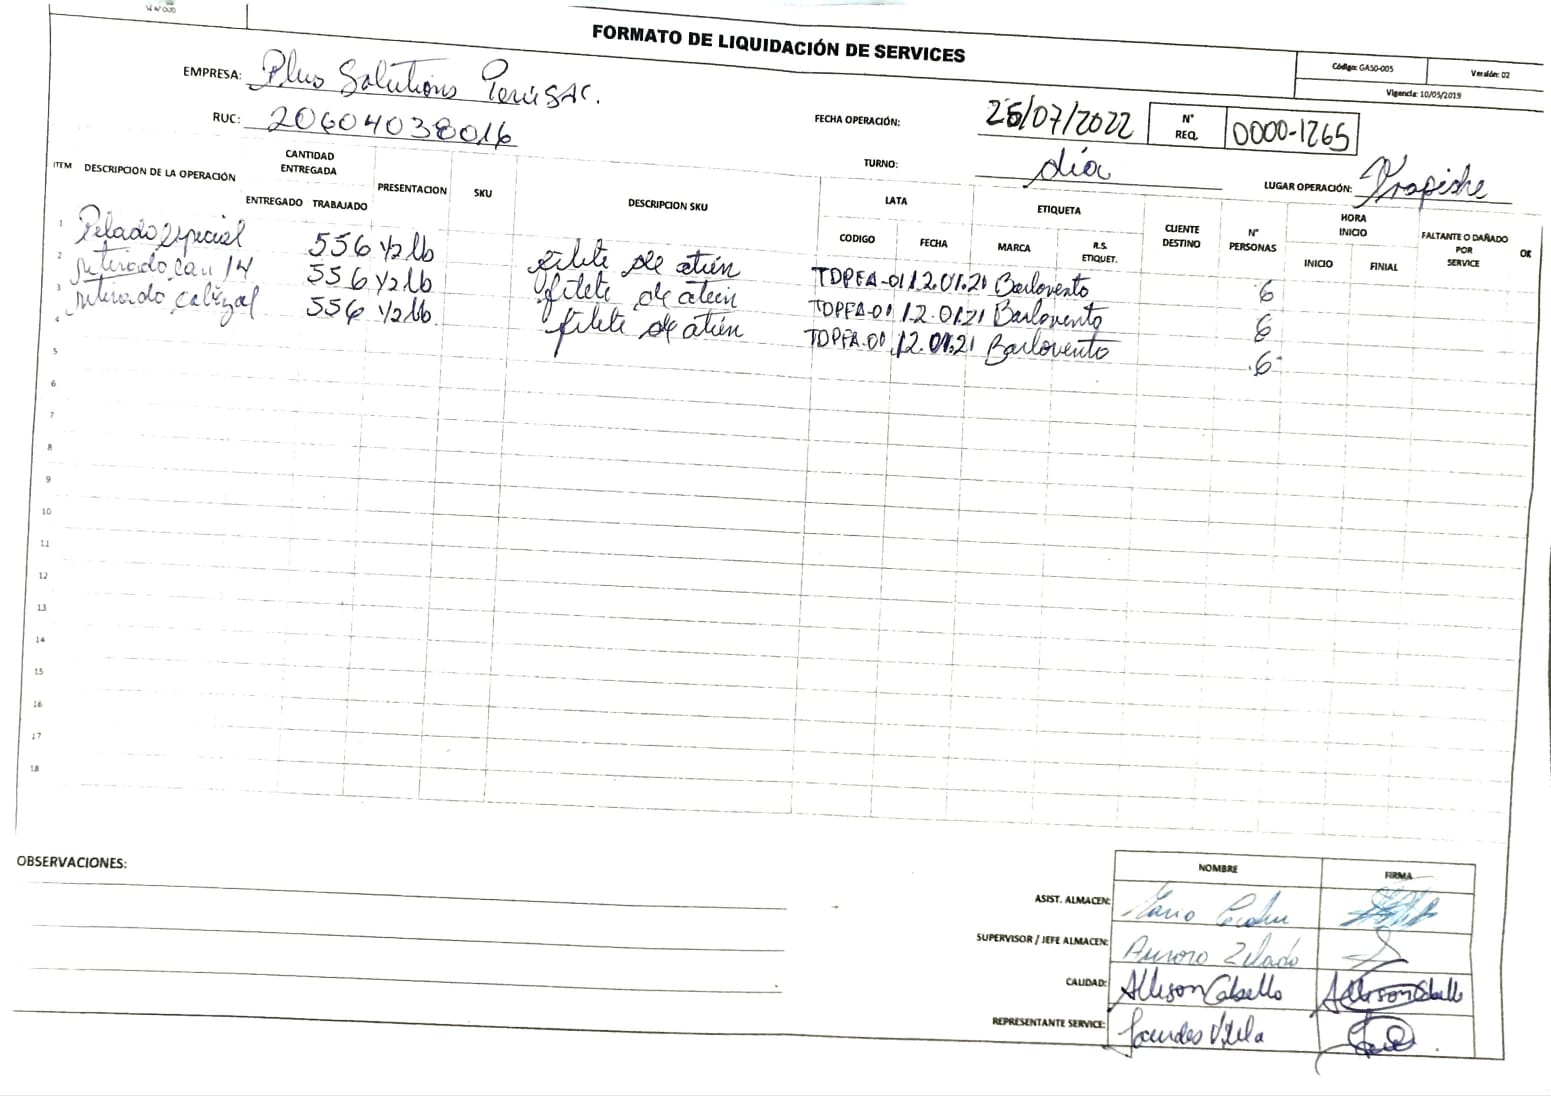 FORMATO DE LIQUIDACIÓN DE SERVICES
Código: GA50-005 Versión: 02
Vigencia: 10/05/2019
EMPRESA: Plus Solutions Perú SAC.
RUC: 20604038016
FECHA OPERACIÓN: 25/07/2022 N° REQ. 0000-1265
TURNO: día
LUGAR OPERACIÓN: Trapiche
ITEM DESCRIPCION DE LA OPERACIÓN CANTIDAD ENTREGADA PRESENTACION SKU DESCRIPCION SKU LATA ETIQUETA CLIENTE DESTINO N° PERSONAS HORA INICIO FALTANTE O DAÑADO POR SERVICE OK
ENTREGADO TRABAJADO CODIGO FECHA MARCA R.S. ETIQUET. INICIO FINIAL
1 Pelado especial 556 1/2 lb filete de atún TDPFA-01 12.01.21 Barlovento 6
2 retirado 14 556 1/2 lb filete de atún TDPFA-01 12.01.21 Barlovento 6
3 retirado cabezal 556 1/2 lb. filete de atún TDPFA-01 12.01.21 Barlovento 6
4
5
6
7
8
9
10
11
12
13
14
15
16
17
18
OBSERVACIONES:
NOMBRE FIRMA
ASIST. ALMACEN: Mario
SUPERVISOR / JEFE ALMACEN: Aurora Zelado
CALIDAD: Allison Cabello Allison Cabello
REPRESENTANTE SERVICE: Lourdes Vilela